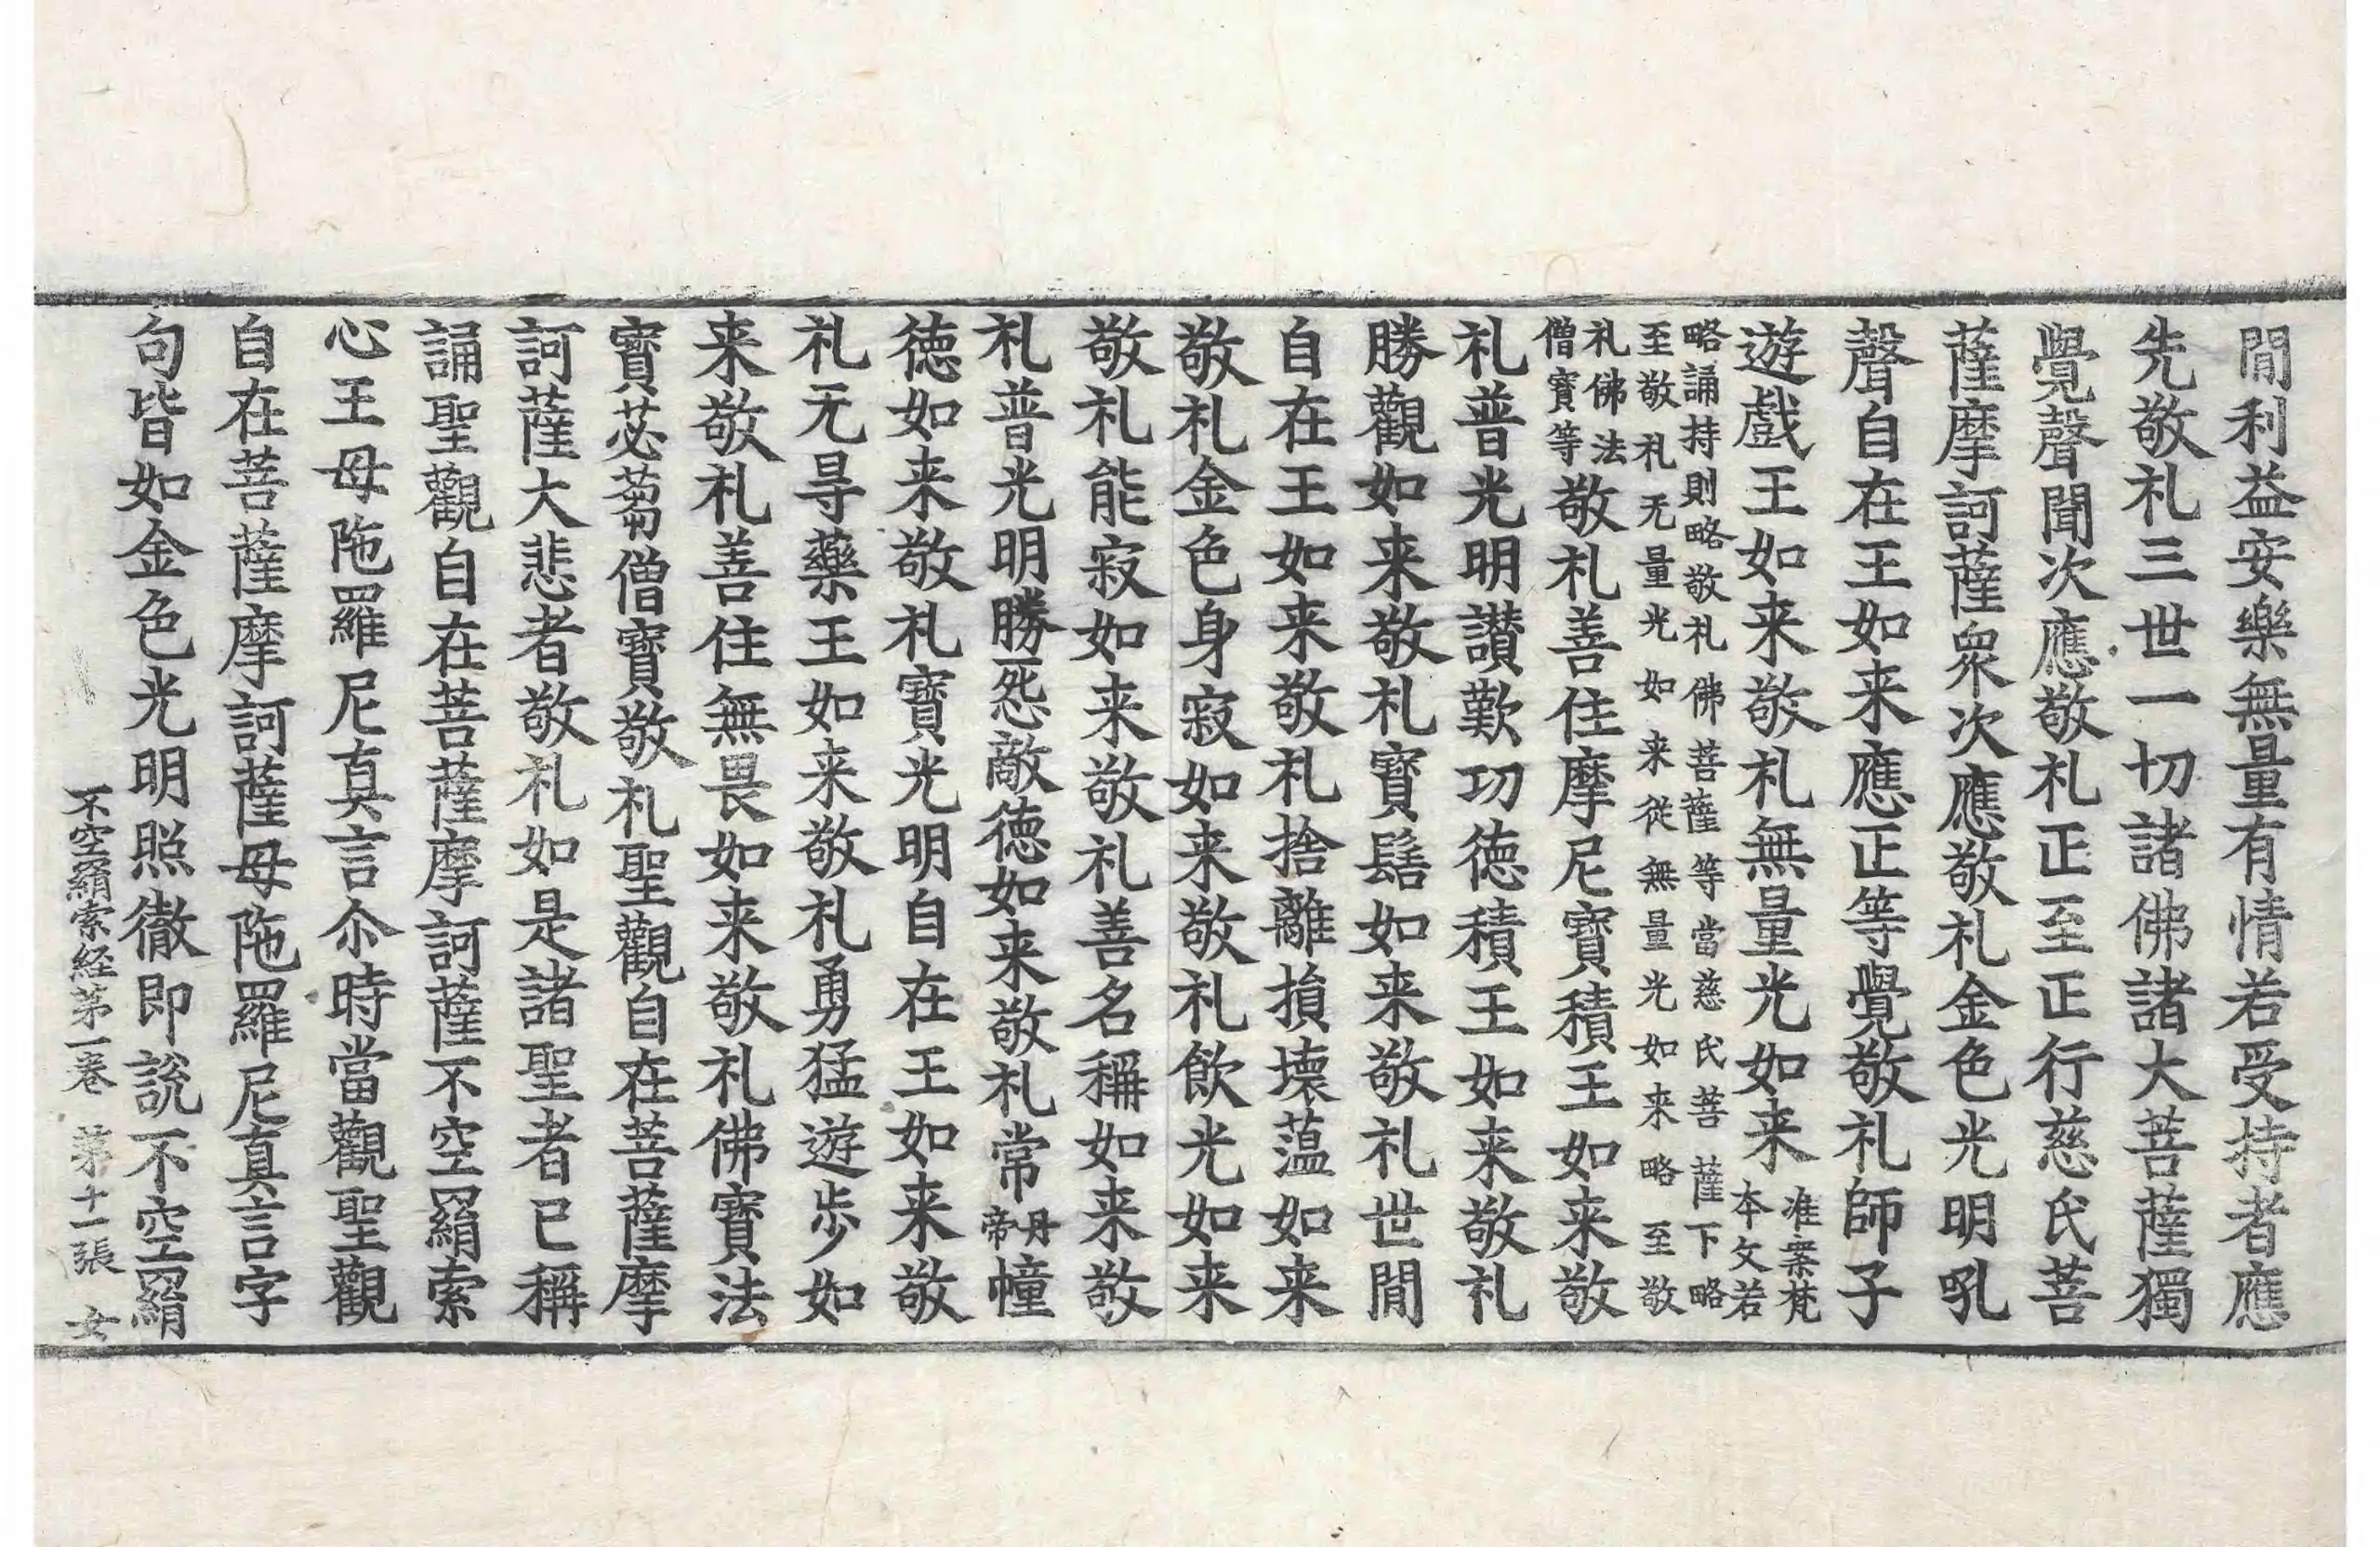 閒利益安樂無量有情若受持者應
先敬礼三世一切諸佛諸大菩薩獨
覺聲聞次應敬礼正至正行慈氏菩
薩摩訶薩衆次應敬礼金色光明吼
聲自在王如来應正等覺敬礼師子
遊戲王如来敬礼無量光如来准案梵本文若
略誦持則略敬礼佛菩薩等當慈氏菩薩下略
至敬礼无量光如来従無量光如来略至敬
礼佛法僧寶等敬礼善住摩尼寶積王如来敬
礼普光明讃歎功徳積王如来敬礼
勝觀如来敬礼寶髻如来敬礼世閒
自在王如来敬礼捨離損壊薀如来
敬礼金色身寂如来敬礼飲光如来
敬礼能寂如来敬礼善名稱如来敬
礼普光明勝怨敵徳如来敬礼常丹帝幢
徳如来敬礼寶光明自在王如来敬
礼无㝵藥王如来敬礼勇猛遊歩如
来敬礼善住無畏如来敬礼佛寶法
寶苾蒭僧寶敬礼聖觀自在菩薩摩
訶薩大悲者敬礼如是諸聖者已稱
誦聖觀自在菩薩摩訶薩不空羂索
心王母陁羅尼真言尒時當觀聖觀
自在菩薩摩訶薩母陁羅尼真言字
句皆如金色光明照徹即說不空羂
不空羂索経第一巻 第十一張 女